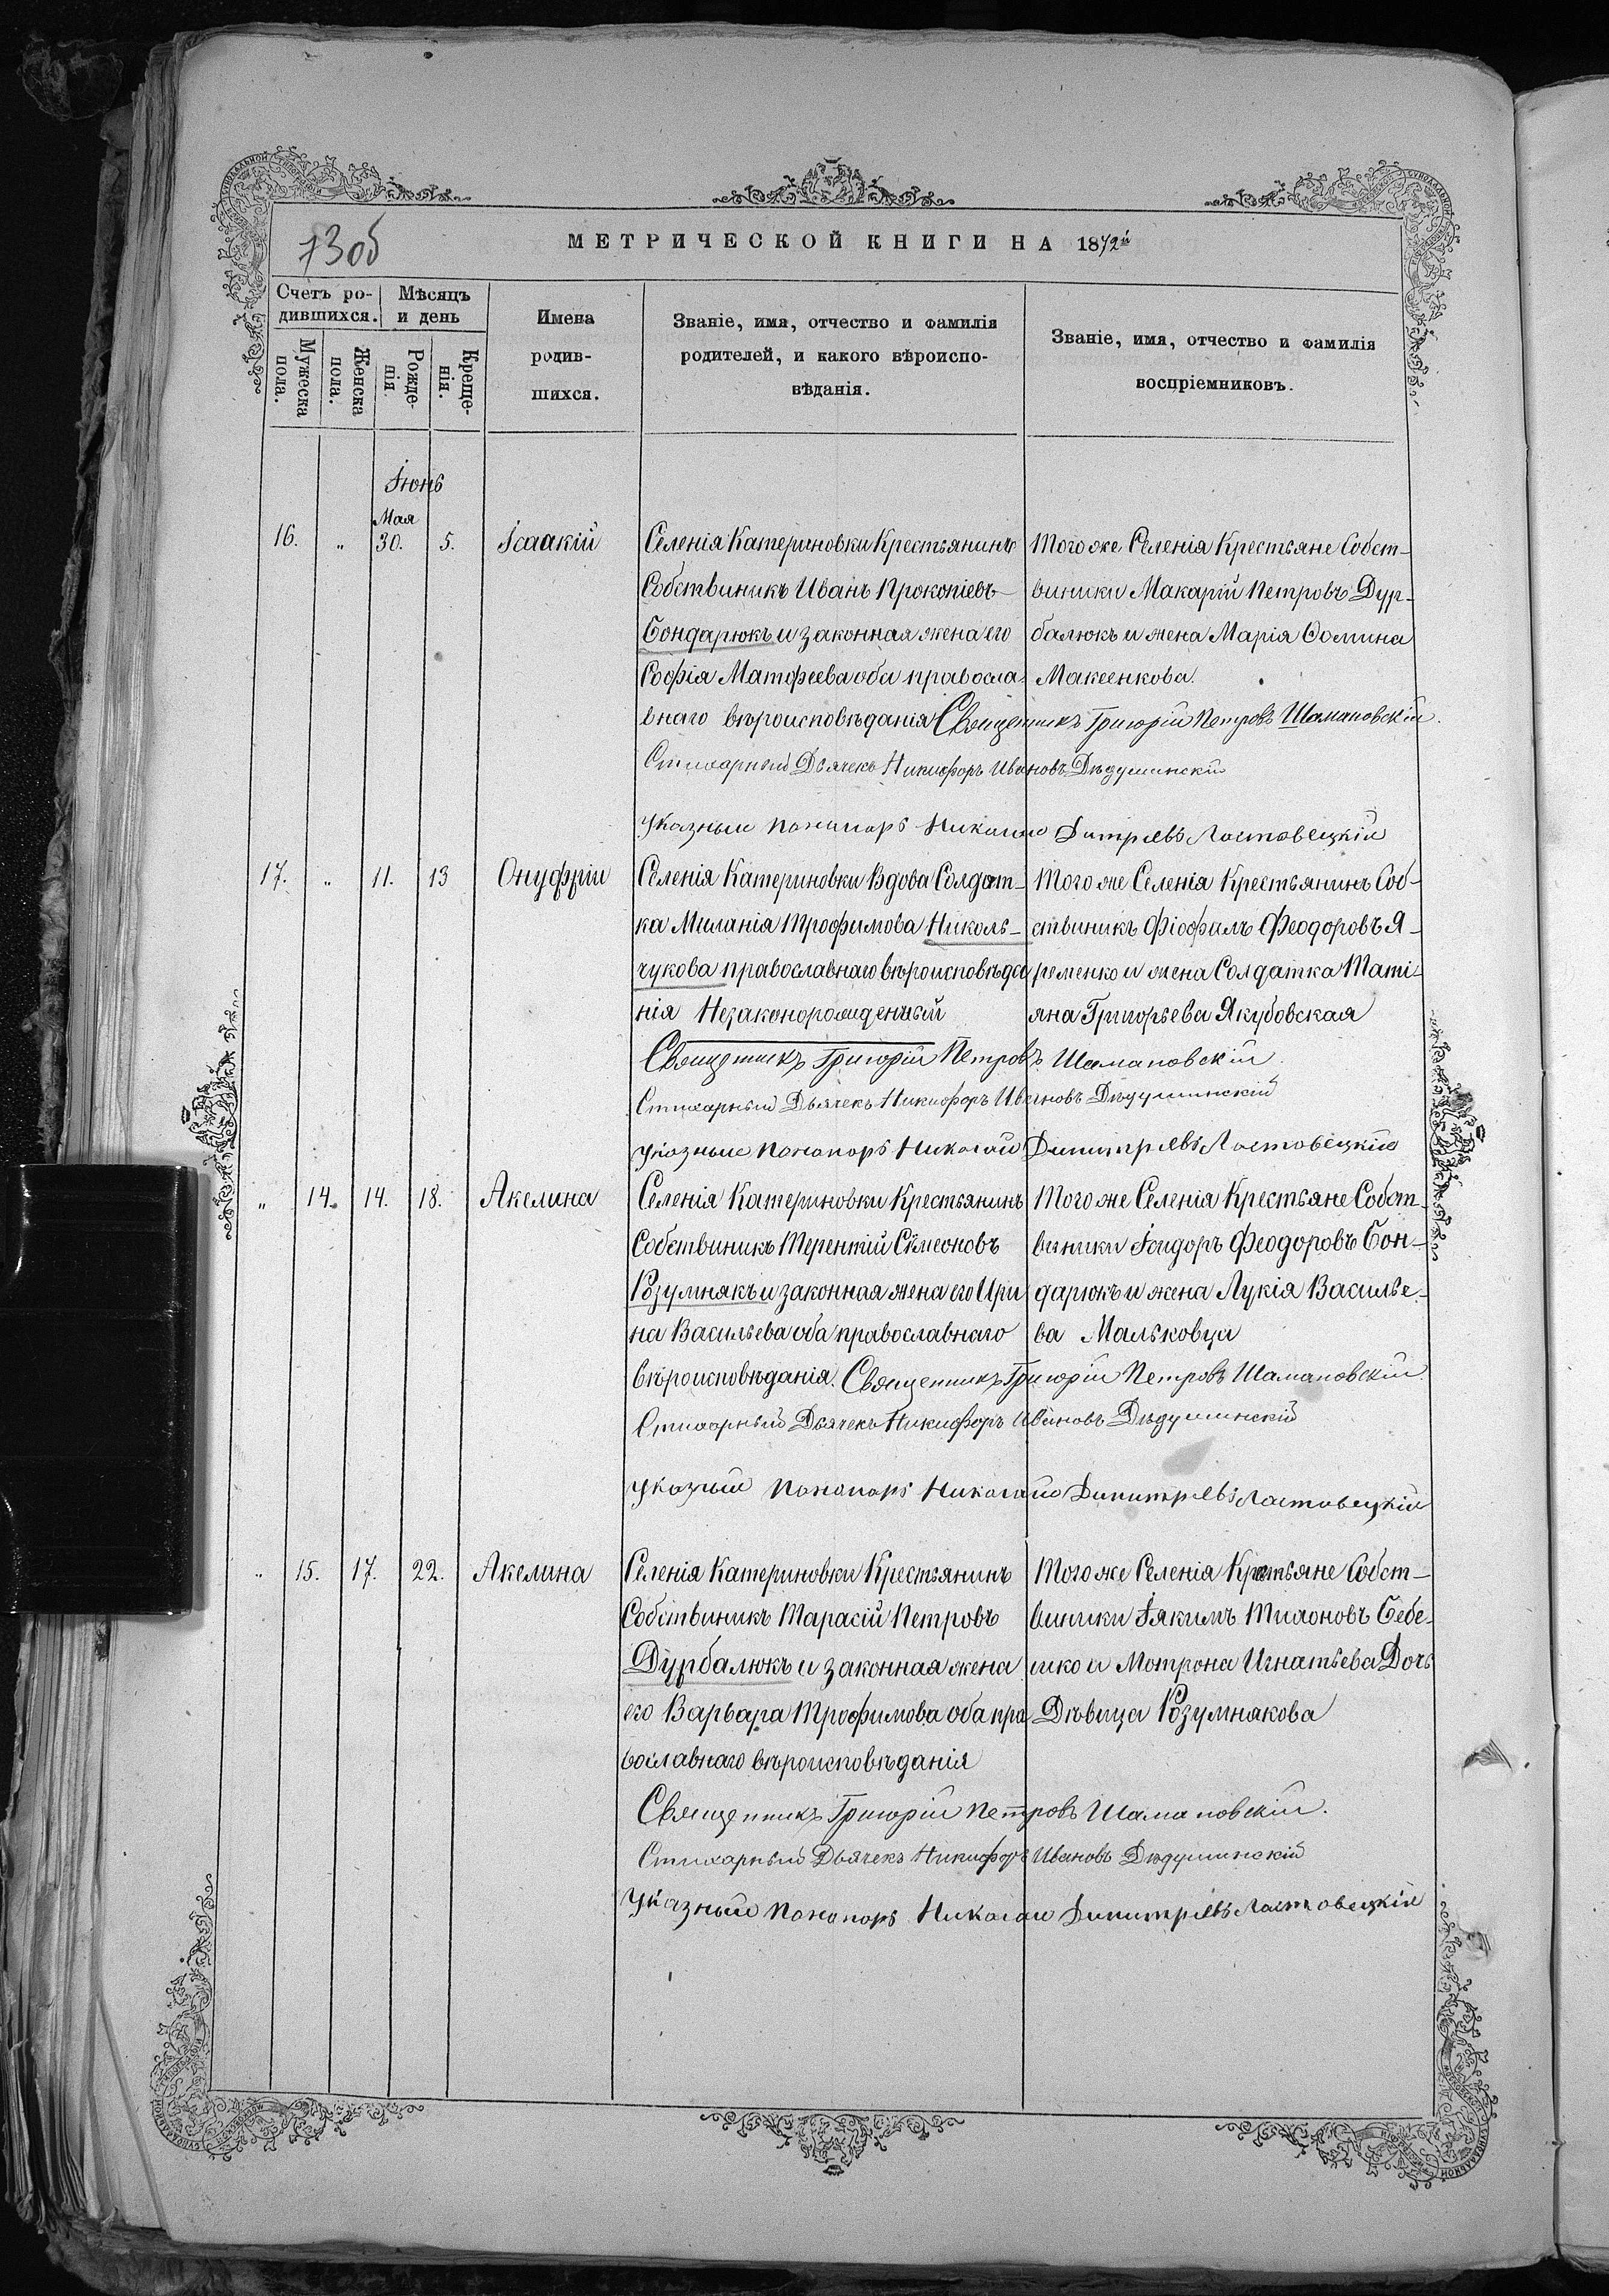 73об
МЕТРИЧЕСКОЙ КНИГИ НА 1872й
Счетъ ро-
дившихся.
Мѣсяцъ
и день
Мужеска
пола.
Женска
пола.
Рожде-
нія.
Креще-
нія.
Имена
родив-
шихся.
Званіе, имя, отчество и фамилія
родителей, и какого вѣроиспо-
вѣданія.
Званіе, имя, отчество и фамилія
воспріемниковъ.
Іюнь
Мая
16. " 30. 5. Ісаакій
Селенія Катериновки Крестьянинъ
Собствиникъ Иванъ Прокопіевъ
Бондарюкъ и законная жена его
Софія Матфеева оба правосла-
внаго вѣроисповѣданія
Того же Селенія Крестьяне Собст-
виники Макарій Петровъ Дур-
балюкъ и жена Марія Фомина
Максенкова.
Священникъ Григорій Петровъ Шамановскій.
Стихарный Дьячекъ Никифоръ Ивановъ Дѣдушинскій
Указный Понамарь Николай Дитріевъ Ластовецкій
17. " 11. 13 Онуфрій
Селенія Катериновки Вдова Солдат-
ка Миланія Трофимова Николь-
чукова православнаго вѣроисповѣда
нія Незаконорожденный
Того же Селенія Крестьянинъ Соб-
ствиникъ Фіофилъ Феодоровъ Я-
ременко и жена Солдатка Таті-
яна Григорьева Якубовская
Священникъ Григорій Петровъ Шамановскій.
Стихарный Дьячекъ Никифоръ Ивановъ Дѣдушинскій
Указный Понамарь Николай Димитріевъ Ластовецкій
" 14. 14. 18. Акелина
Селенія Катериновки Крестьянинъ
Собствиникъ Терентій Симеоновъ
Розумнякъ и законная жена его Ири
на Васильева оба православнаго
вѣроисповѣданія.
Того же Селенія Крестьяне Собст-
виники Ісидоръ Феодоровъ Бон-
дарюкъ и жена Лукія Василье-
ва Мальковца
Священникъ Григорій Петровъ Шамановскій.
Стихарный Дьячекъ Никифоръ Ивановъ Дѣдушинскій
Указный Понамарь Николай Димитріевъ Ластовецкій
" 15. 17. 22. Акелина
Селенія Катериновки Крестьянинъ
Собствиникъ Тарасій Петровъ
Дурбалюкъ и законная жена
его Варвара Трофимова оба пра
вославнаго вѣроисповѣданія
Того же Селенія Крстьяне Собст-
виники Іякимъ Тихоновъ Бебе-
шко и Мотрона Игнатьева Дочь
Дѣвица Розумнякова
Священникъ Григорій Петровъ Шамановскій.
Стихарный Дьячекъ Никифоръ Ивановъ Дѣдушинскій
Указный Понамарь Николай Димитріевъ Ластовецкій